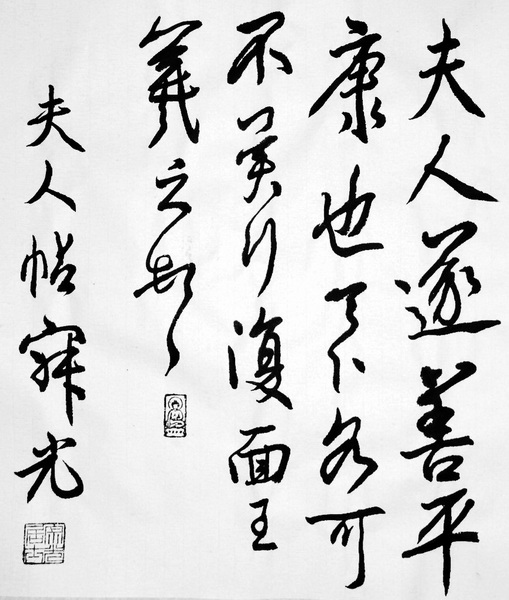 夫人遂善平
康也足下各可
不冀行復面王
羲之
夫人帖 光